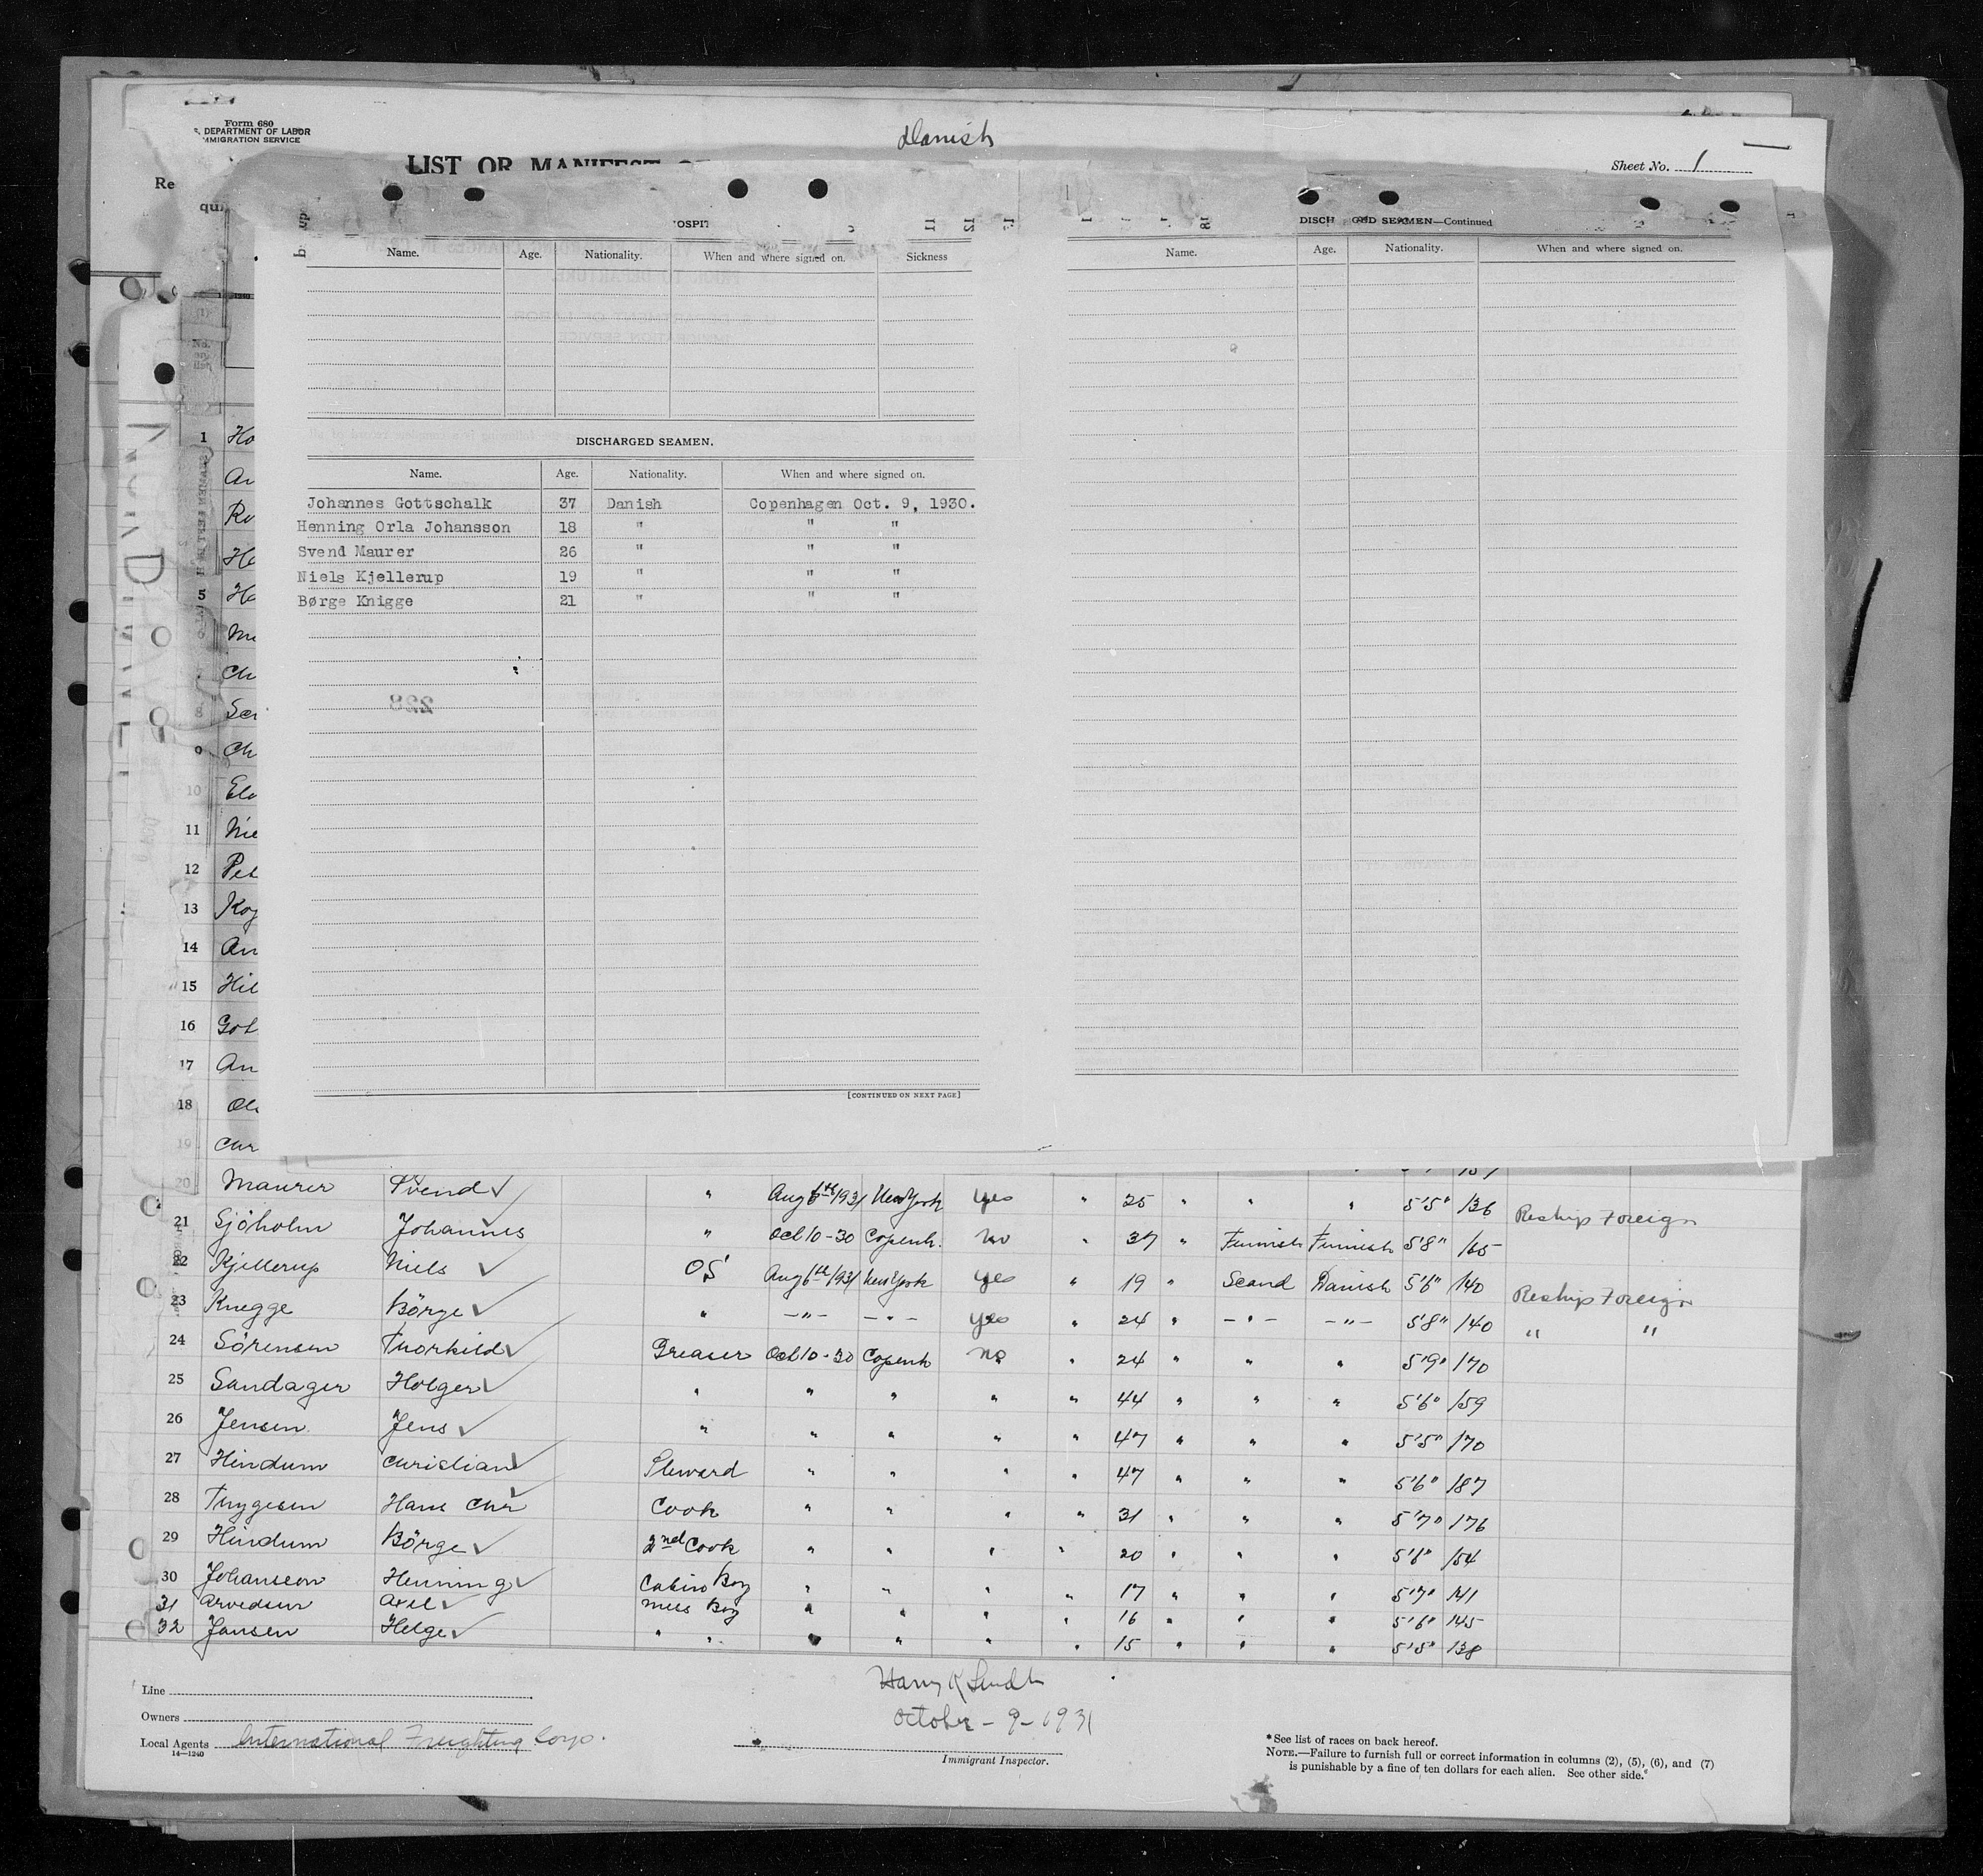 Danish
Form 680
DEPARTMENT OF LABOR
IMMIGRATION SERVICE
LIST OR MANIFEST
Sheet No. 1
Re
qui
OSPIT
Name. Age. Nationality. When and where signed on. Sickness
DISCHARGED SEAMEN.
Name. Age. Nationality. When and where signed on.
Johannes Gottschalk 37 Danish Copenhagen Oct. 9, 1930.
Henning Orla Johansson 18 " " "
Svend Maurer 26 " " "
Niels Kjellerup 19 " " "
Børge Knigge 21 " " "
228
[CONTINUED ON NEXT PAGE]
DISCH GED SEAMEN—Continued
Name. Age. Nationality. When and where signed on.
1 Ho
An
Ro
He
5 Ha
Me
Ch
8 Ser
9 Ch
10 Ele
11 Nie
12 Pet
13 Koj
14 An
15 Hil
16 Got
17 An
18 Ole
19 Chr
20 Maurer Svend " Aug 6th 1931 New York yes " 25 " " " 5'5" 136 Reship Foreign
21 Sjöholm Johannes " Oct 10-30 Copenh. no " 37 " Finnish Finnish 5'8" 165
22 Kjellerup Niels OS Aug 6th 1931 New York yes " 19 " Scand Danish 5'6" 140 Reship Foreign
23 Knegge Börge " -"- -"- yes " 24 " -"- -"- 5'8" 140 " "
24 Sörensen Thorkild Greaser Oct 10-30 Copenh no " 24 " " " 5'9" 170
25 Sandager Holger " " " " " 44 " " " 5'6" 159
26 Jensen Jens " " " " " 47 " " " 5'5" 170
27 Hindum Christian Steward " " " " 47 " " " 5'6" 187
28 Thygesen Hans Chr Cook " " " " 31 " " " 5'7" 176
29 Hindum Börge 2nd Cook " " " " 20 " " " 5'6" 154
30 Johanseon Henning Cabin Boy " " " " 17 " " " 5'7" 141
31 Arvedsen Axel Mess Boy " " " " 16 " " " 5'6" 145
32 Jansen Helge " " " " " " 15 " " " 5'5" 138
Line
Owners
Local Agents International Freighting Corp.
14—1240
October - 9 - 1931
Immigrant Inspector.
* See list of races on back hereof.
NOTE.—Failure to furnish full or correct information in columns (2), (5), (6), and (7)
is punishable by a fine of ten dollars for each alien. See other side.